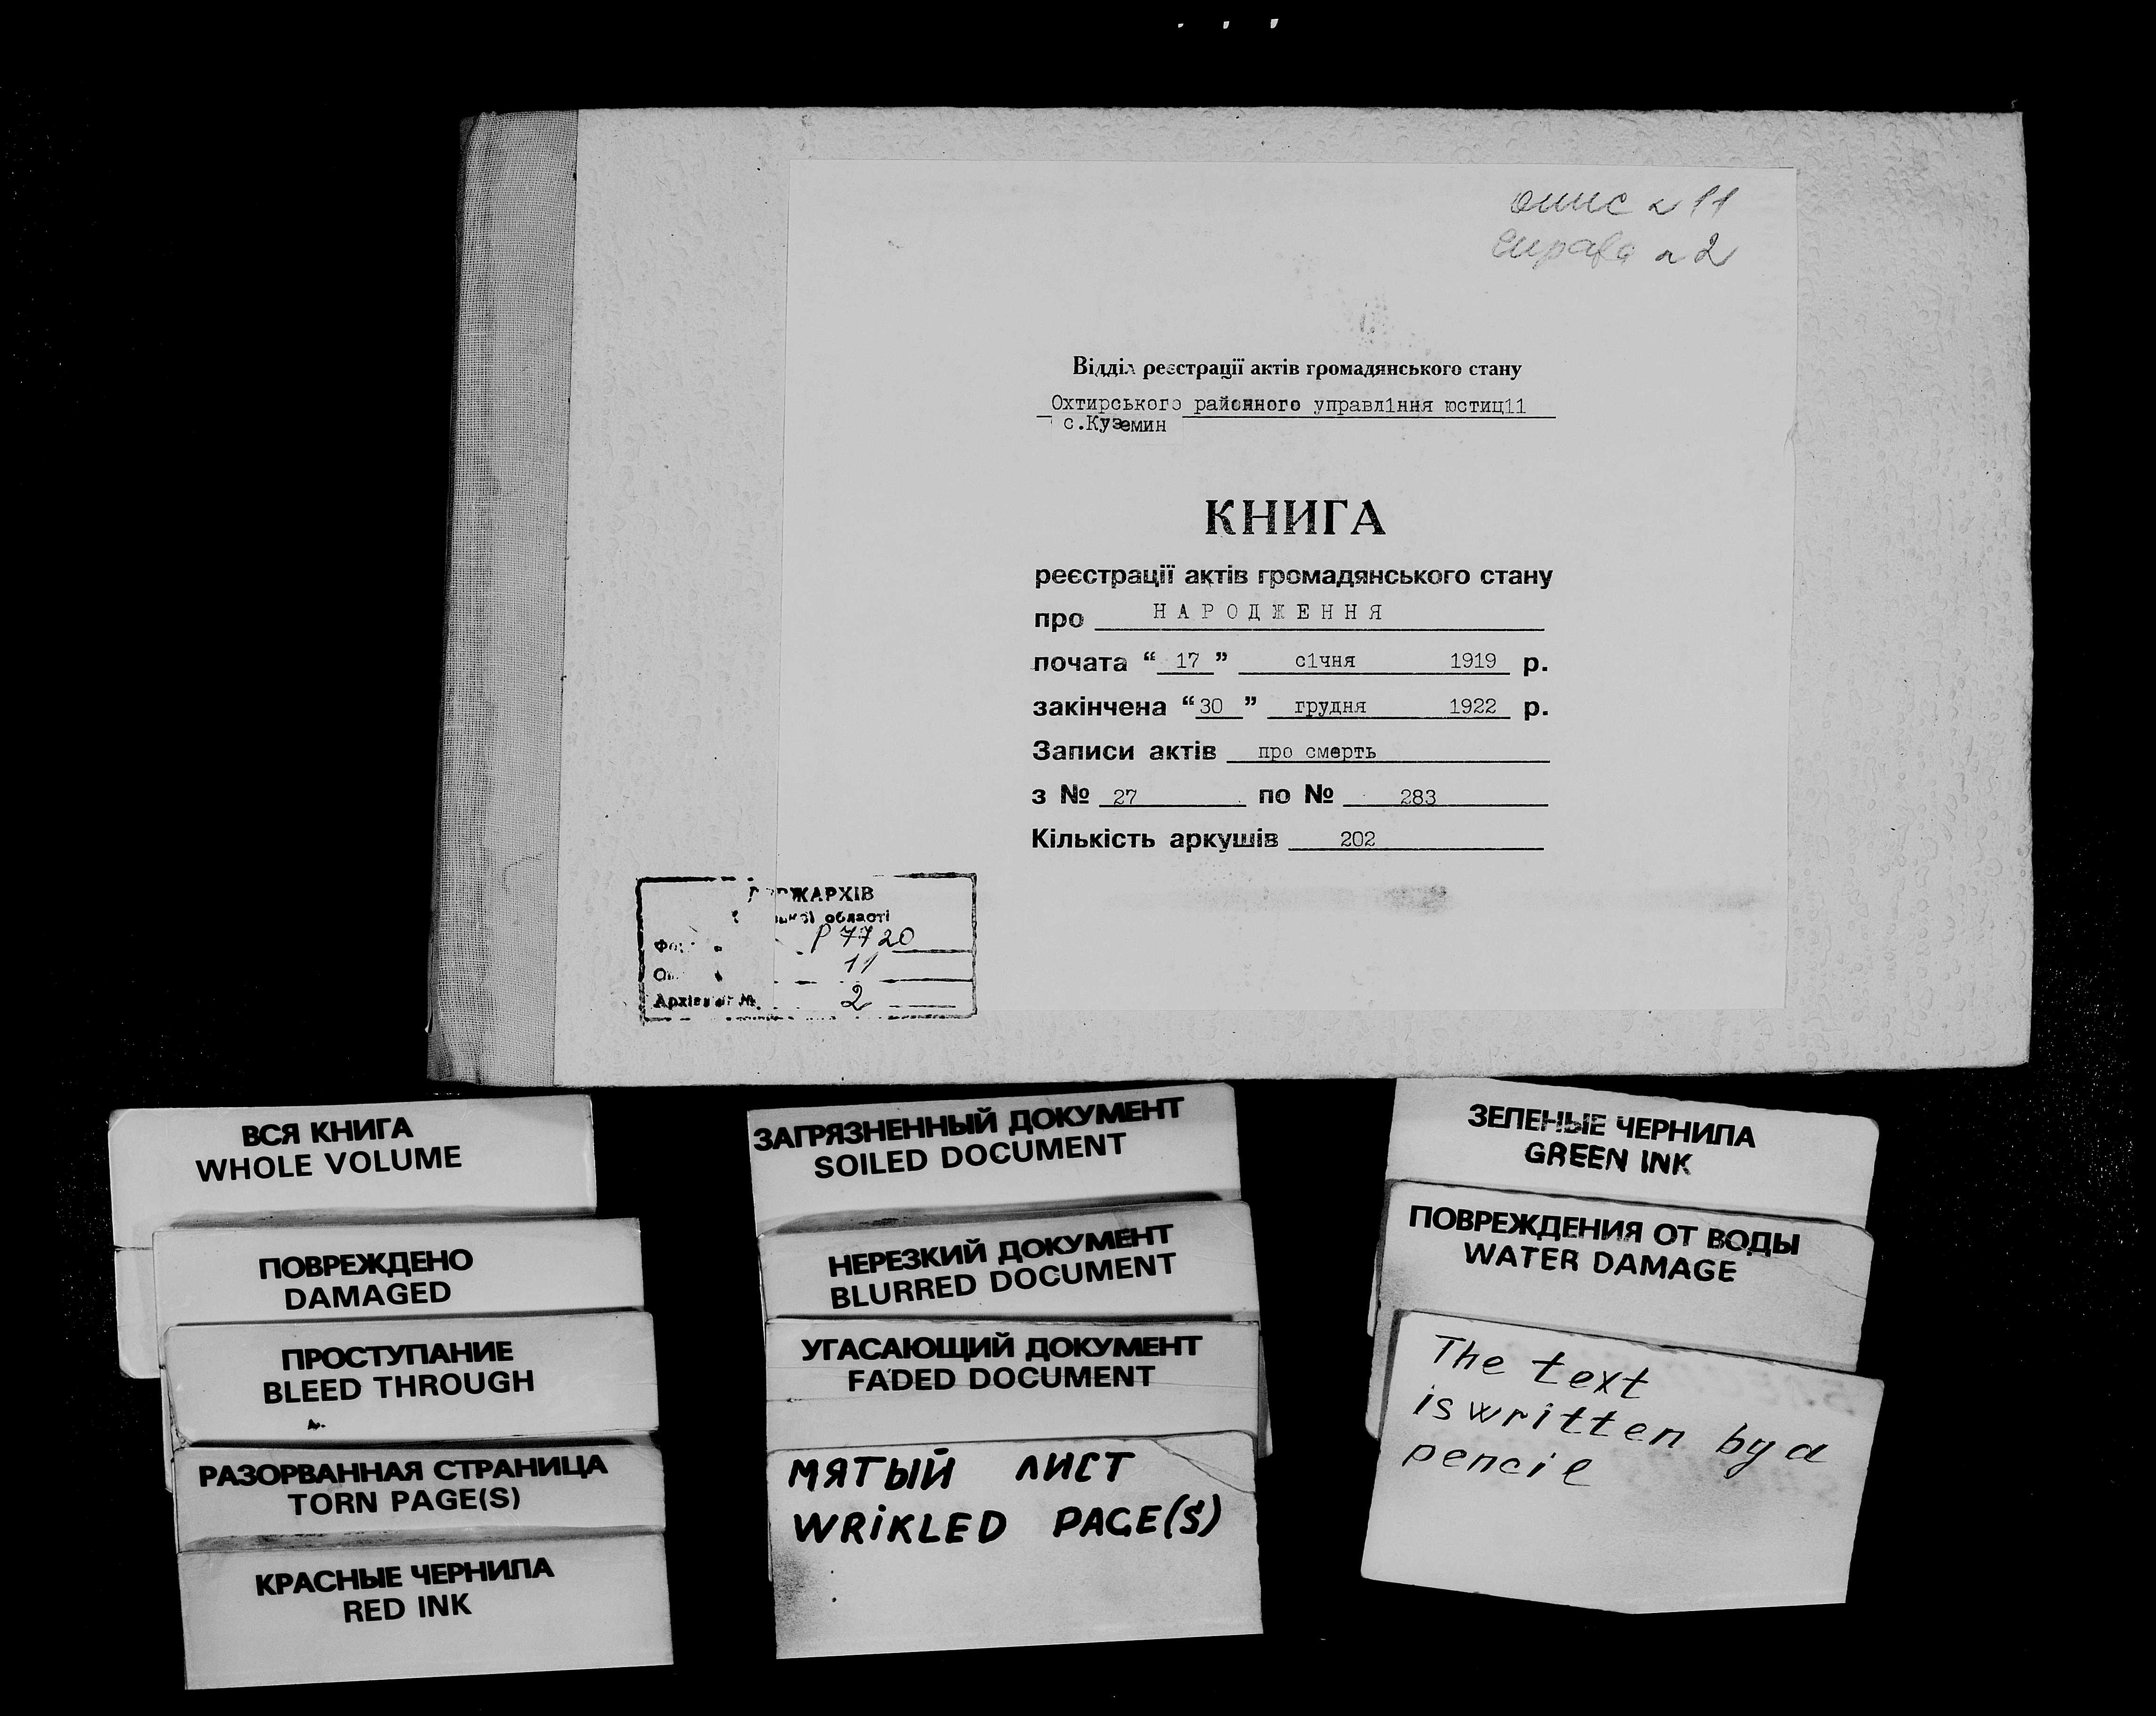 опис N 11
справа N 2
Відділ реєстрації актів громадянського стану
Охтирського районного управл1ння юстиц11
с.Куземин
КНИГА
реєстрації актів громадянського стану
про НАРОДЖЕННЯ
почата “ 17 ” с1чня 1919 р.
закінчена “ 30 ” грудня 1922 р.
Записи актів про смерть
з № 27 по № 283
Кількість аркушів 202
ДЕРЖАРХІВ
області
Р 7720
11
№ 2
ВСЯ КНИГА
WHOLE VOLUME
ПОВРЕЖДЕНО
DAMAGED
ПРОСТУПАНИЕ
BLEED THROUGH
РАЗОРВАННАЯ СТРАНИЦА
TORN PAGE(S)
КРАСНЫЕ ЧЕРНИЛА
RED INK
ЗАГРЯЗНЕННЫЙ ДОКУМЕНТ
SOILED DOCUMENT
НЕРЕЗКИЙ ДОКУМЕНТ
BLURRED DOCUMENT
УГАСАЮЩИЙ ДОКУМЕНТ
FADED DOCUMENT
МЯТЫЙ ЛИСТ
WRIKLED PAGE(S)
ЗЕЛЕНЫЕ ЧЕРНИЛА
GREEN INK
ПОВРЕЖДЕНИЯ ОТ ВОДЫ
WATER DAMAGE
The text
is written by a
pencil